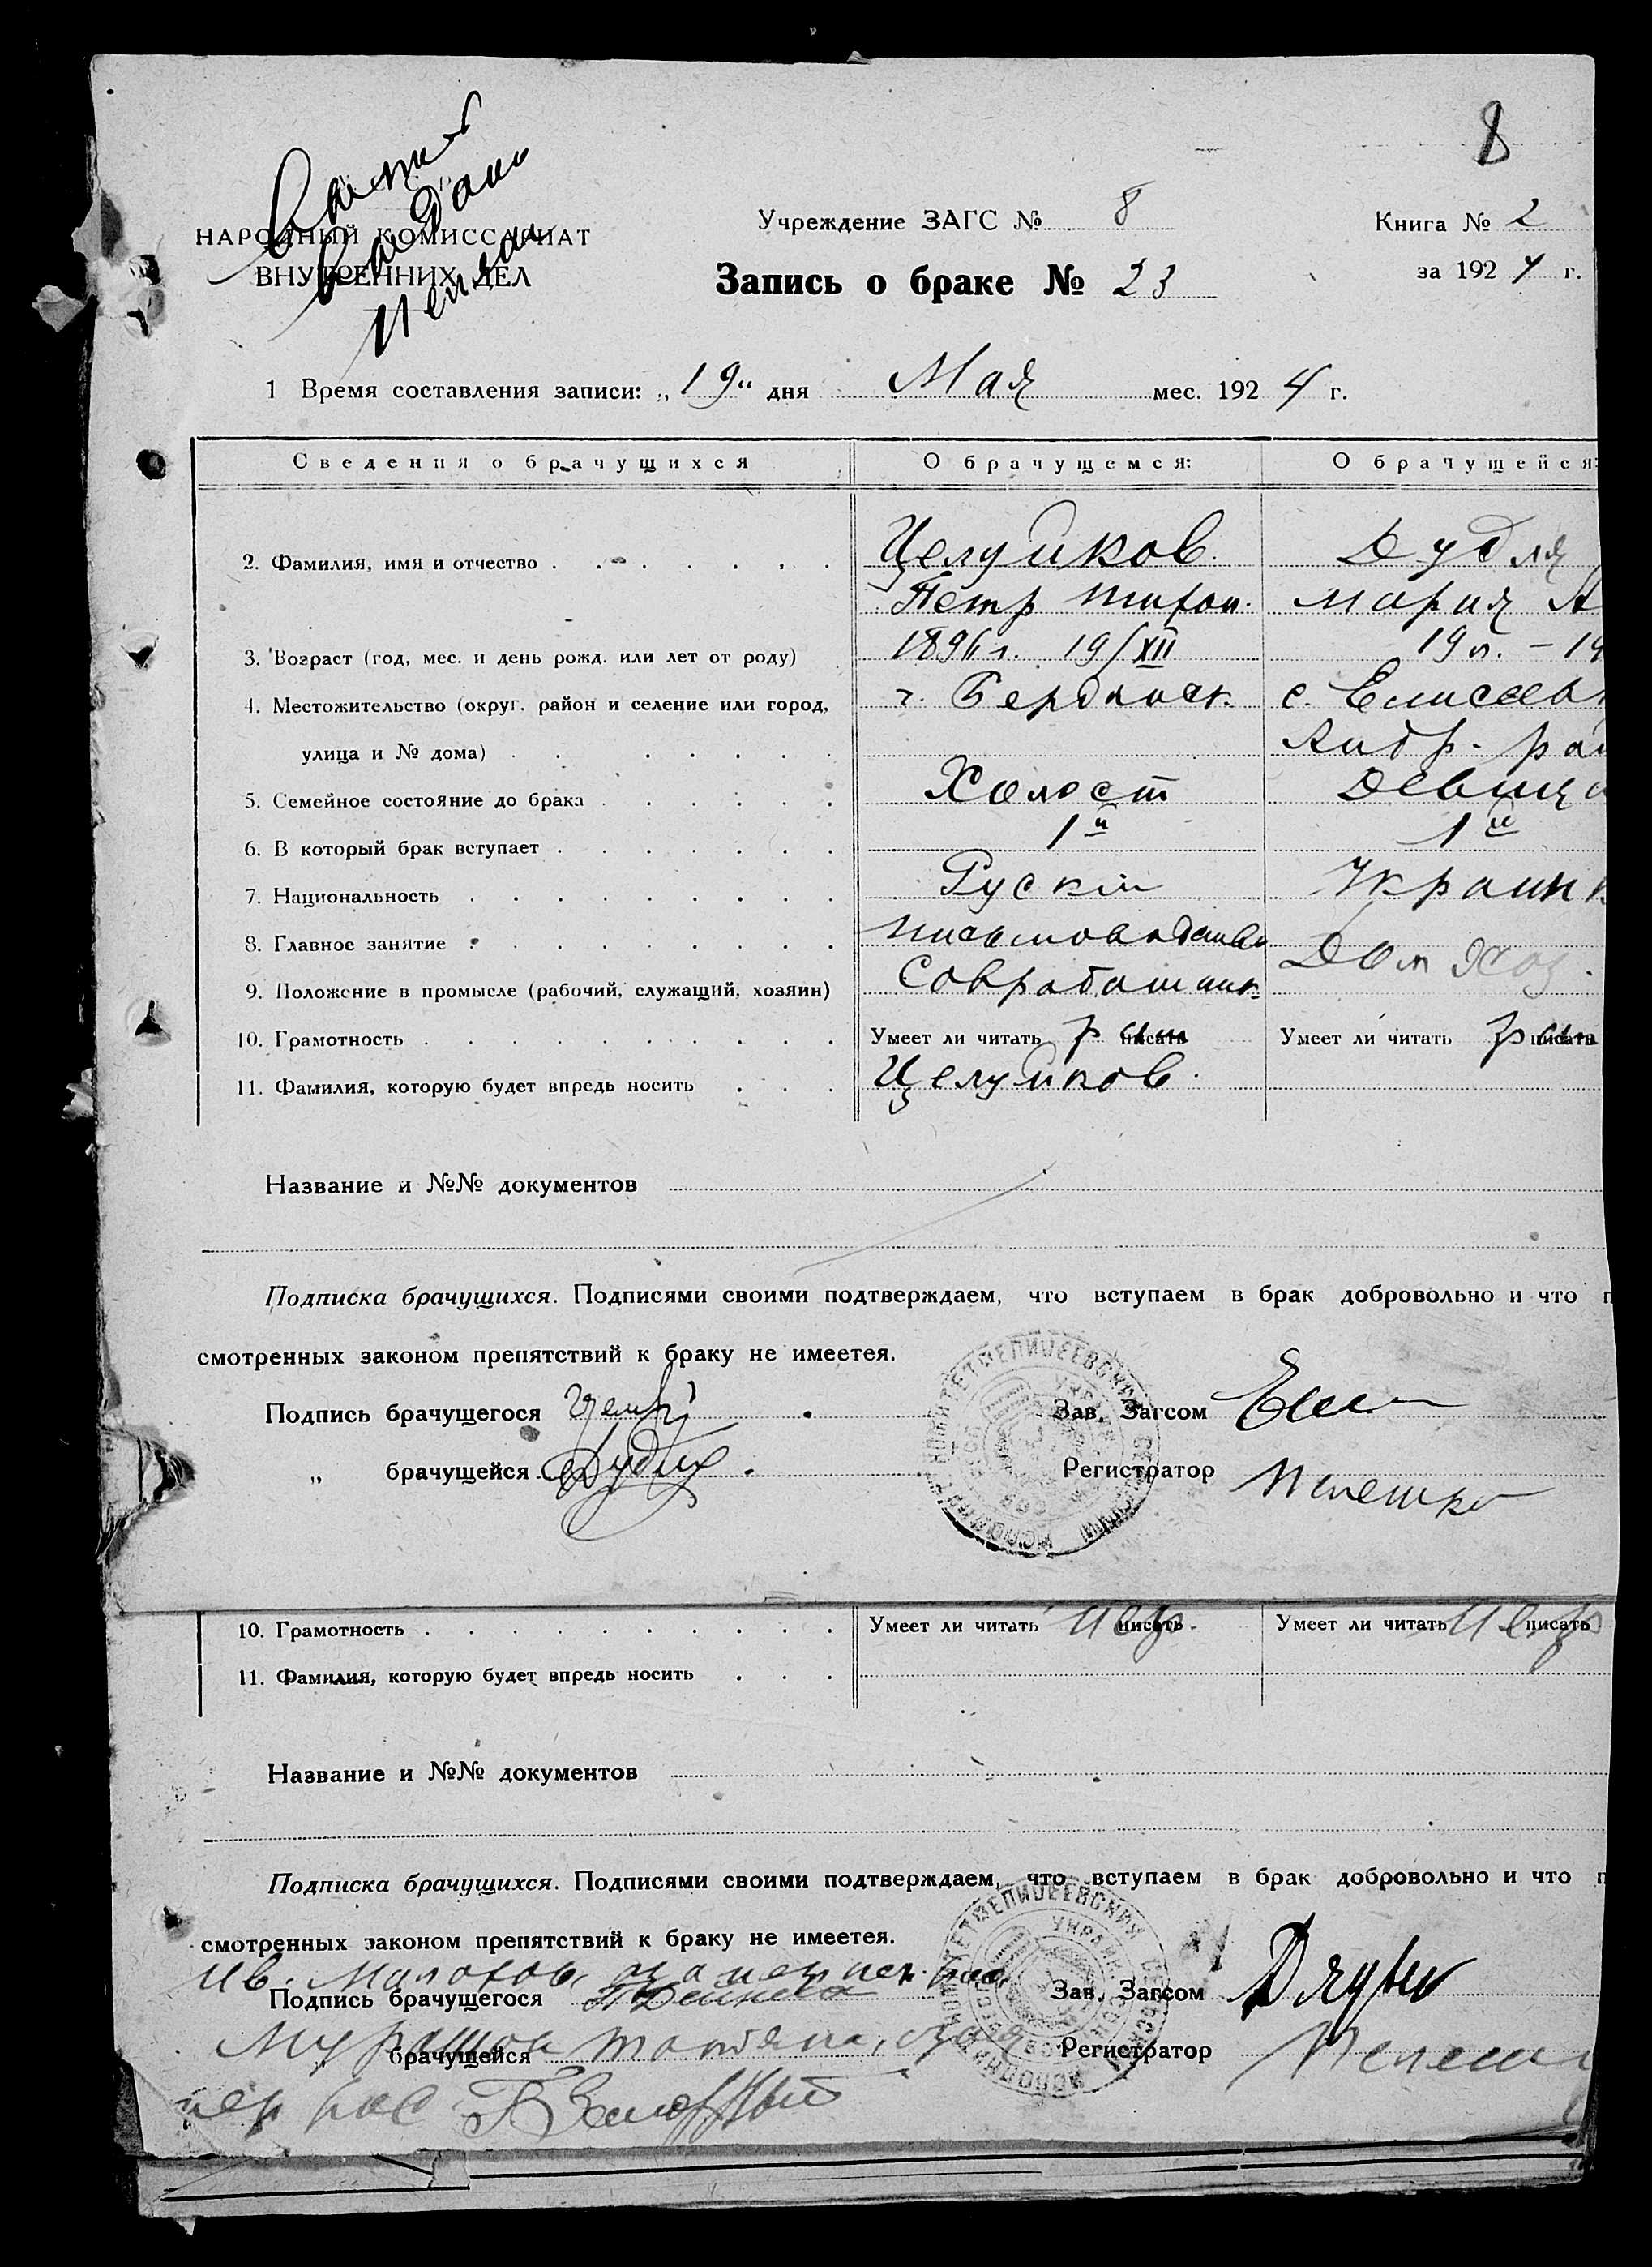 8
НАРОДНЫЙ КОМИССАРИАТ
ВНУТРЕННИХ ДЕЛ
Учреждение ЗАГС № 8
Книга № 2
Запись о браке № 23
за 1924 г.
1 Время составления записи: „19“ дня Мая мес. 1924 г.
Сведения о брачущихся О брачущемся: О брачущейся:
2. Фамилия, имя и отчество Целуйков. Дудля
Петр Тихон. Мария А
3. Возраст (год, мес. и день рожд. или лет от роду) 1896 г. 19/XII 19 л. – 19
4. Местожительство (округ, район и селение или город, г. Бердянск. с. Елисеев
улица и № дома) Андр. рай
5. Семейное состояние до брака Холост Девица
6. В который брак вступает 1й 1й
7. Национальность Руский Украинк
8. Главное занятие Дом Хоз.
9. Положение в промысле (рабочий, служащий, хозяин) Совработник
10. Грамотность Умеет ли читать писать Умеет ли читать писать
11. Фамилия, которую будет впредь носить Целуйков.
Название и №№ документов
Подписка брачущихся. Подписями своими подтверждаем, что вступаем в брак добровольно и что п
смотренных законом препятствий к браку не имеетея.
Подпись брачущегося Зав. Загсом
„ брачущейся Дудля Регистратор
10. Грамотность Умеет ли читать писать Умеет ли читать писать
11. Фамилия, которую будет впредь носить
Название и №№ документов
Подписка брачущихся. Подписями своими подтверждаем, что вступаем в брак добровольно и что п
смотренных законом препятствий к браку не имеетея.
Подпись брачущегося Зав. Загсом
брачущейся Регистратор